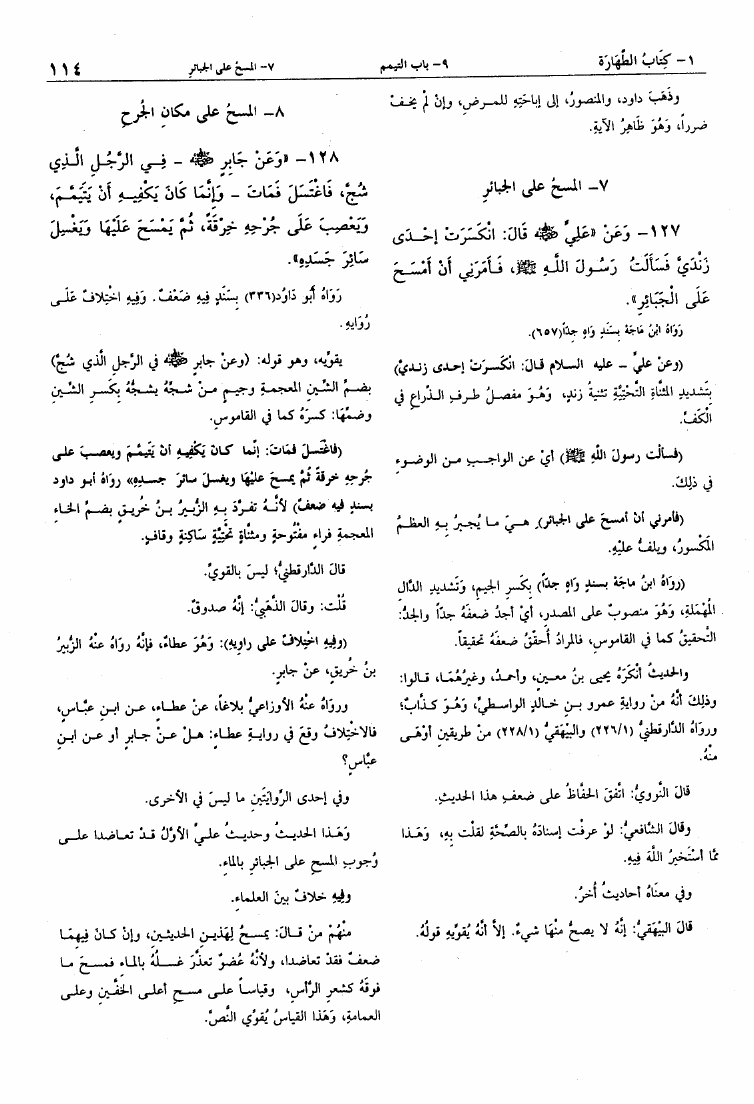 ١- كِتَابُ الطَّهَارَة ٩- باب التيمم ٧- المسحُ على الجبائرِ ١١٤
وذَهَبَ داود، والمنصورُ، إلى إباحَتِهِ للمـرضِ، وإنْ لمْ يخـفْ
ضرراً، وَهُوَ ظَاهِرُ الآيةِ.
٧- المسحُ على الجبائرِ
١٢٧- وَعَنْ «عَلِيٍّ ﷺ قَالَ: انْكَسَرَتْ إِحْـدَى
زَنْدَيَّ فَسَأَلتُ رَسُـولَ اللَّـهِ ﷺ، فَـأَمَرَنِي أَنْ أَمْسَـحَ
عَلَى الْجَبَائِرِ».
رَوَاهُ ابْنُ مَاجَهْ بِسندٍ وَاهٍ جِدّاً(٦٥٧).
(وعَنْ عليٍّ – عليه السلام قَـالَ: انْكَسَـرَتْ إحـدى زنـديَّ)
بِتَشديدِ المثنَّاةِ التَّحْتِيَّةِ تثنيةُ زندٍ، وَهُـوَ مفصـلُ طـرفِ الـذراعِ في
الْكَفِّ.
(فسألت رسولَ اللَّهِ ﷺ) أيْ عن الواجـبِ مـن الوضـوءِ
في ذلِكَ.
(فأمرني أنْ أمسحَ على الجبائرِ). هـيَ مـا يُجـبرُ بِـهِ العظـمُ
المَكسُورُ، ويلفُّ عليْهِ.
(روَاهُ ابنُ ماجَهْ بسندٍ وَاهٍ جدّاً) بِكَسرِ الجيمِ، وتَشديدِ الدَّالِ
المُهْمَلَةِ، وَهُوَ منصوبٌ على المصدرِ، أيْ أجِدُّ ضعفَهُ جدّاً والجدُّ:
التَّحقيقُ كما في القاموسِ، فالمرادُ أُحقِّقُ ضعفَهُ تحقيقاً.
والحديثُ أنْكَرَهُ يحيى بنُ معـينٍ، وأحمـدُ، وغيرُهُمَـا، قـالوا:
وذلكَ أنَّهُ منْ روايةِ عمرو بـنِ خـالدٍ الواسـطيِّ، وَهُـوَ كـذَّابٌ؛
ورواهُ الدَّارقطنيُّ (٢٢٦/١) والبَيْهَقِيُّ (٢٢٨/١) منْ طريقينِ أوْهَى
منْهُ.
قالَ النَّوويُّ: اتَّفقَ الحفَّاظُ على ضعفِ هذا الحديثِ.
وقالَ الشَّافعيُّ: لوْ عرفْتُ إسنادَهُ بالصِّحَّةِ لقلْت بِهِ، وَهَـذا
ممَّا أَسْتَخيرُ اللَّهَ فِيهِ.
وفي معنَاهُ أحاديثُ أُخرُ.
قالَ البَيْهَقيُّ: إنَّهُ لا يصحُّ منْهَا شيءٌ. إلاَّ أنَّهُ يُقويهِ قولُهُ.
٨- المسحُ على مكانِ الجُرحِ
١٢٨- «وَعَنْ جَابِرٍ ﷺ – فِـي الرَّجُـلِ الَّـذِي
شُجَّ، فَاغْتَسَلَ فَمَاتَ – وَإِنَّمَا كَانَ يَكْفِيـهِ أَنْ يَتَيَمَّـمَ،
وَيَعْصِبَ عَلَى جُرْحِهِ خِرْقَةً، ثُمَّ يَمْسَحَ عَلَيْهَا وَيَغْسِلَ
سَائِرَ جَسَدِهِ».
رَوَاهُ أَبُو دَاوُد(٣٣٦) بِسَنَدٍ فِيهِ ضَعْفٌ. وَفِيهِ اخْتِلافٌ عَلَـى
رُوَاتِهِ.
يقويْهِ، وهو قوله: (وعنْ جابرٍ ﷺ في الرَّجلِ الَّذي شُجَّ)
بضـمِّ الشِّـينِ المعجمـةِ وجيـمٍ مـنْ شـجَّهُ يشـجُّهُ بِكَسرِ الشِّـينِ
وضمِّهَا: كسرَهُ كما في القاموسِ.
(فاغْتَسلَ فمَاتَ: إنَّمـا كـانَ يَكْفِيـهِ أنْ يَتَيمَّـمَ ويعصـبَ علـى
جُرحِهِ خرقةً ثُمَّ يمسحَ عليْهَا ويغسلَ سائرَ جسدِهِ» روَاهُ أبـو داود
بسندٍ فيهِ ضعفٌ) لأنَّـهُ تفـرَّدَ بِـهِ الزُّبـيرُ بـنُ خُريـقٍ بضـمِّ الخـاءِ
المعجمةِ فراءٍ مفْتُوحةٍ ومثنَّاةٍ تحْتِيَّةٍ ساكِنةٍ وقافٍ.
قالَ الدَّارقطنيُّ؛ ليسَ بالقويِّ.
قُلْت: وقالَ الذَّهَبيُّ: إنَّهُ صدوقٌ.
(وفِيهِ اخْتلافٌ على راويهِ): وَهُوَ عطاءٌ، فإنَّهُ روَاهُ عنْهُ الزُّبيرُ
بنُ خُريقٍ، عنْ جابرٍ.
وروَاهُ عنْهُ الأوزاعيُّ بلاغاً، عنْ عطـاءٍ، عـن ابـنِ عبَّـاسٍ،
فالاخْتِلافُ وقعَ في روايـةِ عطـاءٍ: هـلْ عـنْ جـابرٍ أو عـن ابـنِ
عبَّاسٍ؟
وفي إحدى الرِّوايَتَينِ ما ليسَ في الأخرى.
وَهَـذا الحديـثُ وحديـثُ علـيٍّ الأوَّلُ قـدْ تعـاضدا علـى
وُجوبِ المسحِ على الجبائرِ بالماءِ.
وفِيهِ خلافٌ بينَ العلماءِ.
منْهُم مـنْ قـالَ: يمسـحُ لِهَذيـنِ الحديثـينِ، وإنْ كـانَ فِيهِمَـا
ضعفٌ فقدْ تعاضدا، ولأنَّهُ عُضوٌ تعذَّرَ غسـلُهُ بالمـاءِ فمسـحَ مـا
فوقَهُ كشعرِ الرَّأسِ، وقياسـاً علـى مسـحِ أعلـى الخفَّـينِ وعلـى
العمامةِ، وَهَذا القياسُ يُقوِّي النَّصَّ.